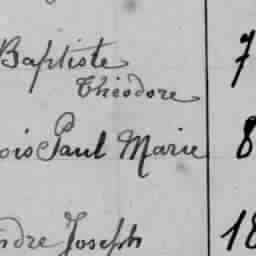 Baptiste 7
Théodore
ois Paul Marie 8
ndre Joseph 18